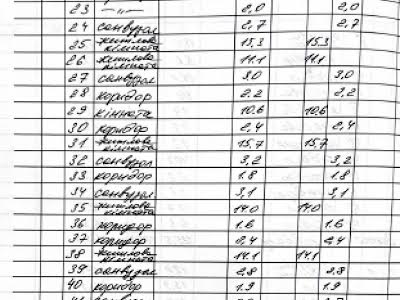 23 —„— 2,0 2,0
24 санвузол 2,7 2,7
25 житлова кімната 15,3 15.3
26 житлова кімната 11.1 11.1
27 санвузол 3,0 3,0
28 коридор 2.2 2,2
29 кімната 10.6 10.6
30 коридор 2,4 2,4
31 житлова кімната 15,7 15,7
32 санвузол 3,2 3,2
33 коридор 1.8 1.8
34 санвузол 3,1 3,1
35 житлова кімната 14.0 14.0
36 коридор 1.6 1.6
37 коридор 2,4 2.4
38 житлова кімната 14.1 14.1
39 санвузол 2,8 2.8
40 коридор 1.9 1.9